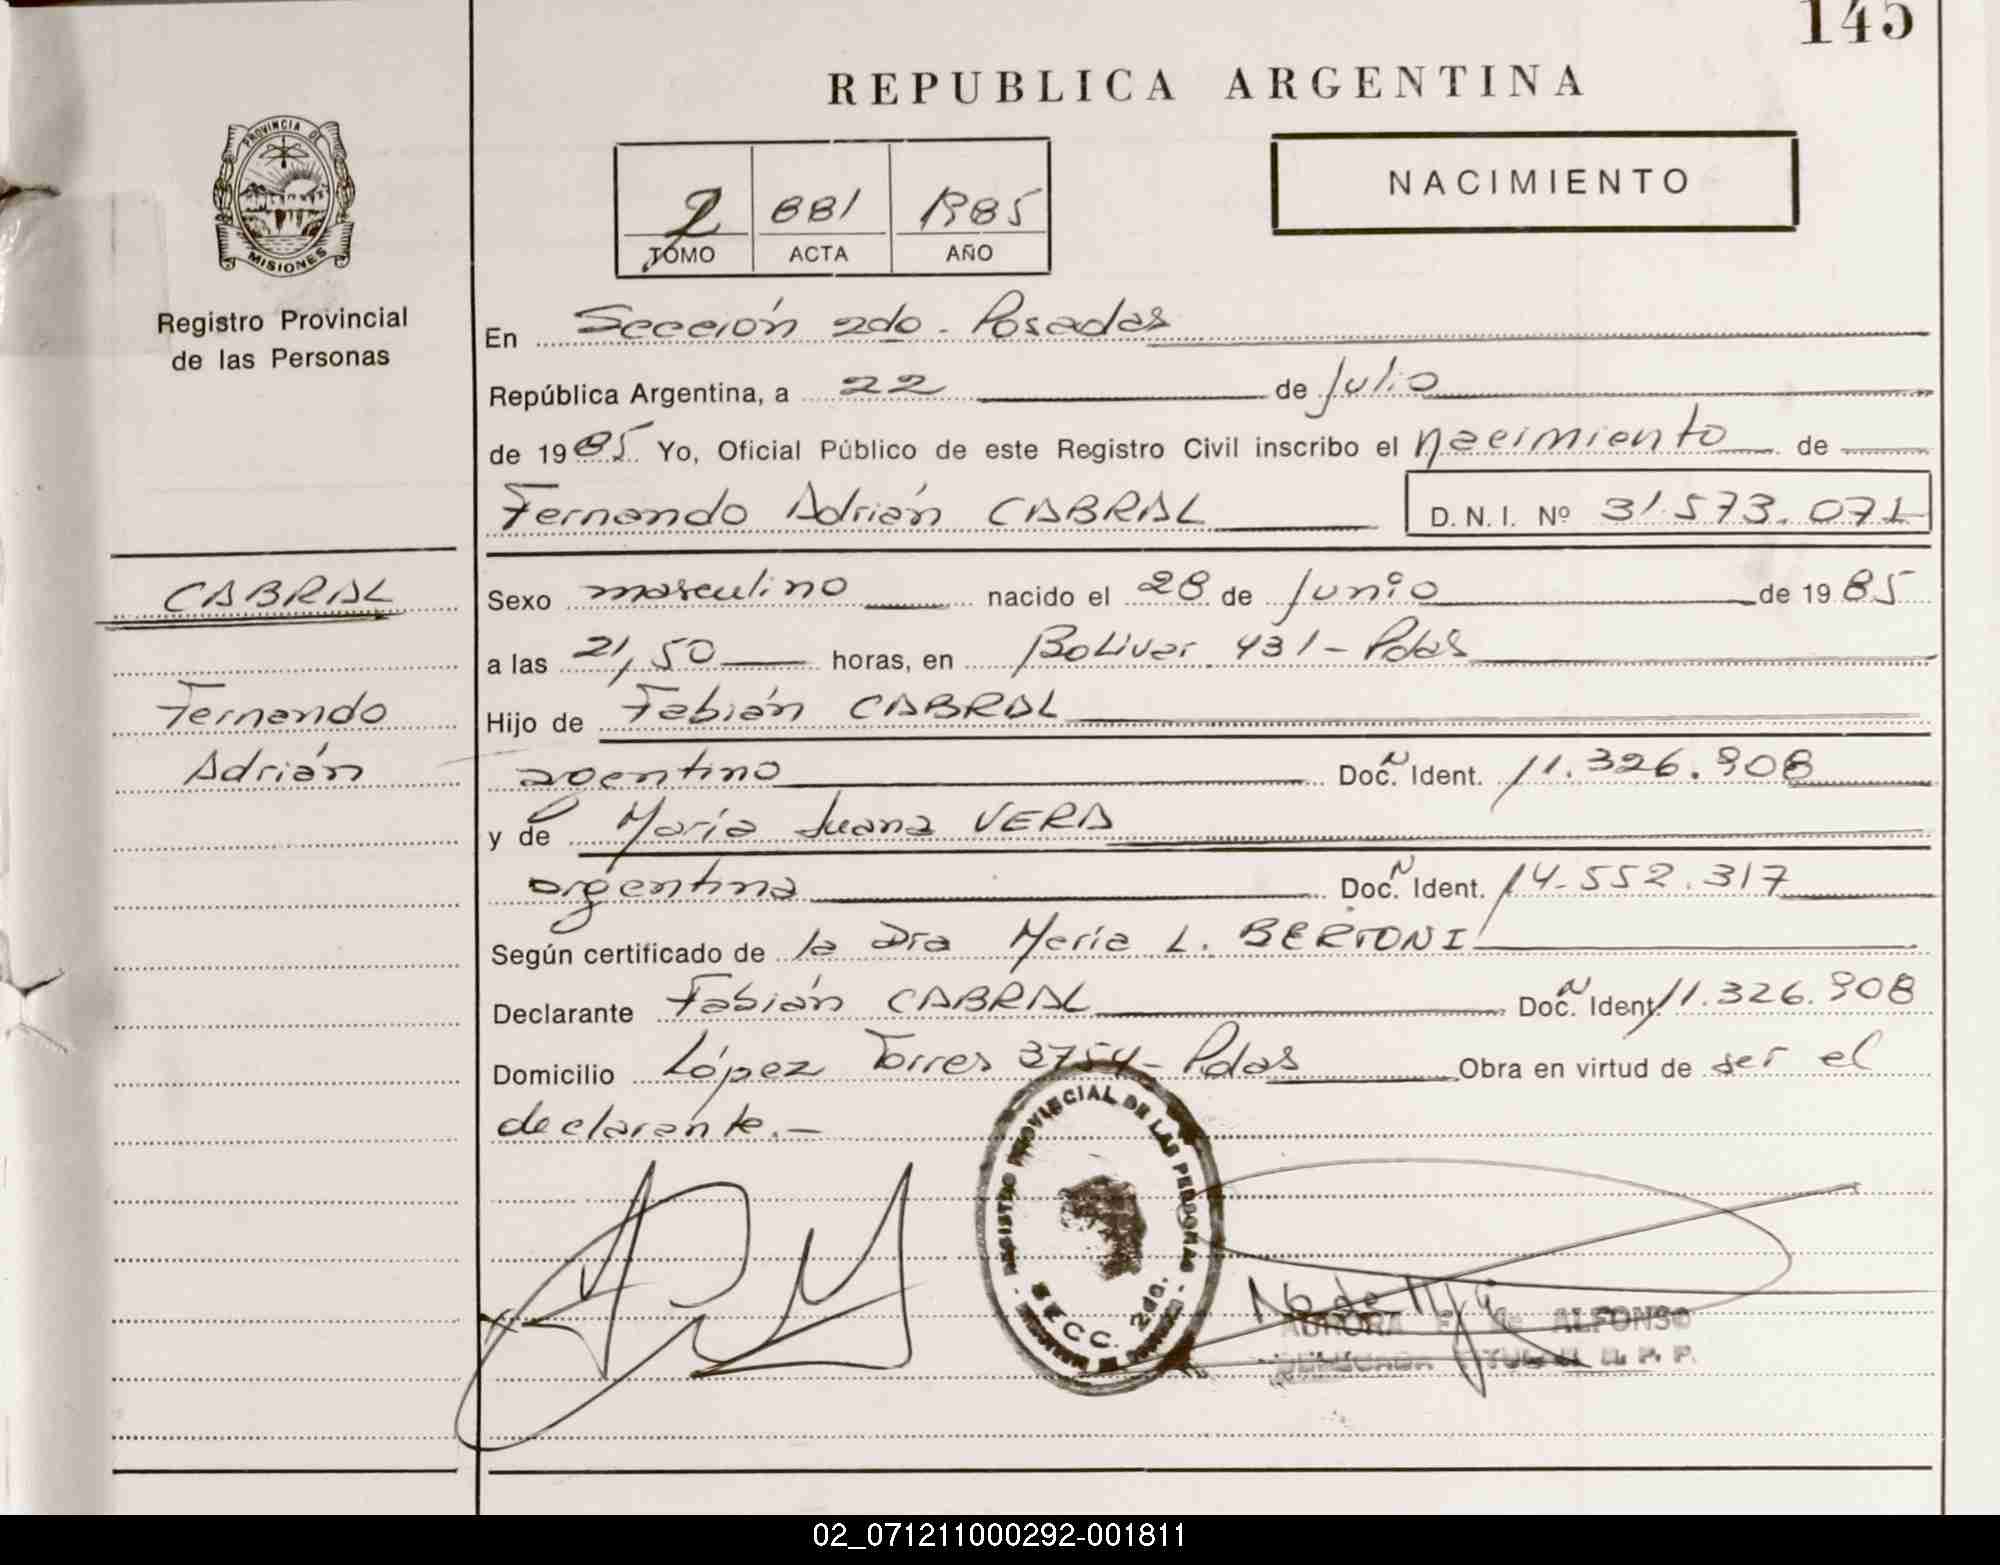 145
REPUBLICA ARGENTINA
PROVINCIA DE
MISIONES
Registro Provincial
de las Personas
2 881 1985
TOMO ACTA AÑO
NACIMIENTO
En Sección 2do. Posadas
República Argentina, a 22 de Julio
de 1985 Yo, Oficial Público de este Registro Civil inscribo el nacimiento de
Fernando Adrián CABRAL D. N. I. Nº 31.573.071
CABRAL
Fernando
Adrián
Sexo masculino nacido el 28 de Junio de 1985
a las 21,50 horas, en Bolivar 431 - Pdas
Hijo de Fabián CABRAL
argentino Doc. N Ident. 11.326.908
y de María Juana VERA
argentina Doc. N Ident. 14.552.317
Según certificado de la Dra María L. BERTONI
Declarante Fabián CABRAL Doc. N Ident. 11.326.908
Domicilio López Torres 3754 - Pdas Obra en virtud de ser el
declarante.-
REGISTRO PROVINCIAL DE LAS PERSONAS
SECC. 2do.
AURORA ALFONSO
02_071211000292-001811